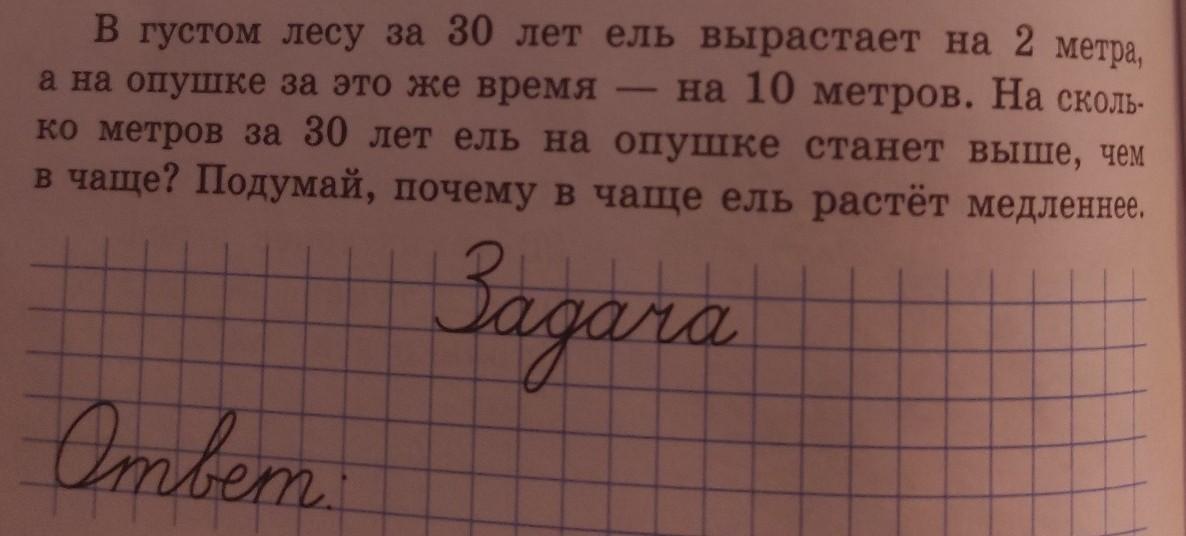 В густом лесу за 30 лет ель вырастает на 2 метра,
а на опушке за это же время — на 10 метров. На сколь-
ко метров за 30 лет ель на опушке станет выше, чем
в чаще? Подумай, почему в чаще ель растёт медленнее.
Задача
Ответ: